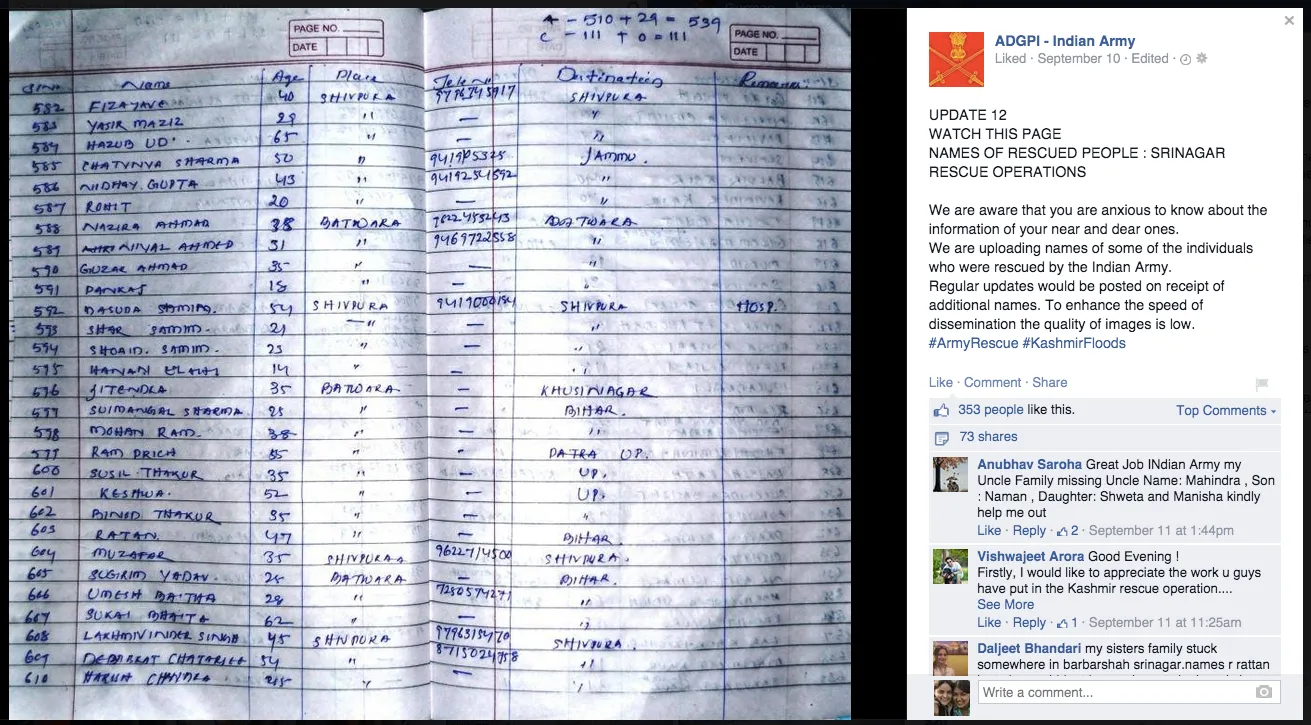 A - 510 + 29 = 539
C - 111 + 0 = 111
PAGE NO.
DATE
PAGE NO.
DATE
Name Age Place Destination
582 FIZAYAVE 40 SHIVPURA SHIVPURA
583 YASIR MAZIZ 29 " — "
584 HAZUB UD 65 " — "
585 CHATYNYA SHARMA 50 " JAMMU.
586 NIDHAY GUPTA 43 " 9419254592 "
587 ROHIT 20 " — "
588 NAZIRA AHMAD 38 BATWARA BATWARA
589 NIVAL AHMED 31 " 9469722558 "
590 GUZAR AHMAD 35 " — "
591 PANKAJ 18 " — "
592 SHIVPURA SHIVPURA HOSP.
593 SHAR SAMIM. 21 — " — "
594 SHOAID. SAMIM. 23 " — "
595 HANAN ELAHI 14 " — "
596 JITENDRA 35 BATWARA — KHUSINAGAR
597 SUIMANGAL SHARMA 25 " — BIHAR.
598 MOHAN RAM. 38 " — "
599 RAM " UP.
600 SUSIL THAKUR 35 " — UP.
601 KESHWA. 52 " — UP.
602 BINOD THAKUR 35 " — "
603 RATAN. 47 " — BIHAR.
604 MUZAFOR 35 SHIVPURA 9622714500 SHIVPURA.
605 SUGRIM YADAV. 25 BATWARA — BIHAR.
606 UMESH BAITHA 28 " 7250574271 "
607 SUKAI BHAITA 62 " — "
608 LAKHMIVINDER SINGH 45 SHIVPURA SHIVPURA.
609 DEBABRAT CHATARJEE 54 " 8715024758 "
610 HARUN CHANDRA " — "
ADGPI - Indian Army
Liked · September 10 · Edited ·
UPDATE 12
WATCH THIS PAGE
NAMES OF RESCUED PEOPLE : SRINAGAR
RESCUE OPERATIONS
We are aware that you are anxious to know about the
information of your near and dear ones.
We are uploading names of some of the individuals
who were rescued by the Indian Army.
Regular updates would be posted on receipt of
additional names. To enhance the speed of
dissemination the quality of images is low.
#ArmyRescue #KashmirFloods
Like · Comment · Share
353 people like this. Top Comments
73 shares
Anubhav Saroha Great Job INdian Army my
Uncle Family missing Uncle Name: Mahindra , Son
: Naman , Daughter: Shweta and Manisha kindly
help me out
Like · Reply · 2 · September 11 at 1:44pm
Vishwajeet Arora Good Evening !
Firstly, I would like to appreciate the work u guys
have put in the Kashmir rescue operation....
See More
Like · Reply · 1 · September 11 at 11:25am
Daljeet Bhandari my sisters family stuck
somewhere in barbarshah srinagar.names r rattan
Write a comment...